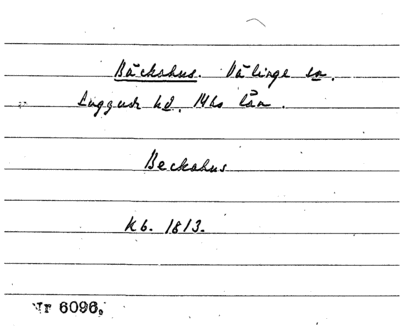 Bäckahus. Välinge sn.
Luggude hd. Mhs län.
Beckahus
Kb. 1813.
Nr 6096.